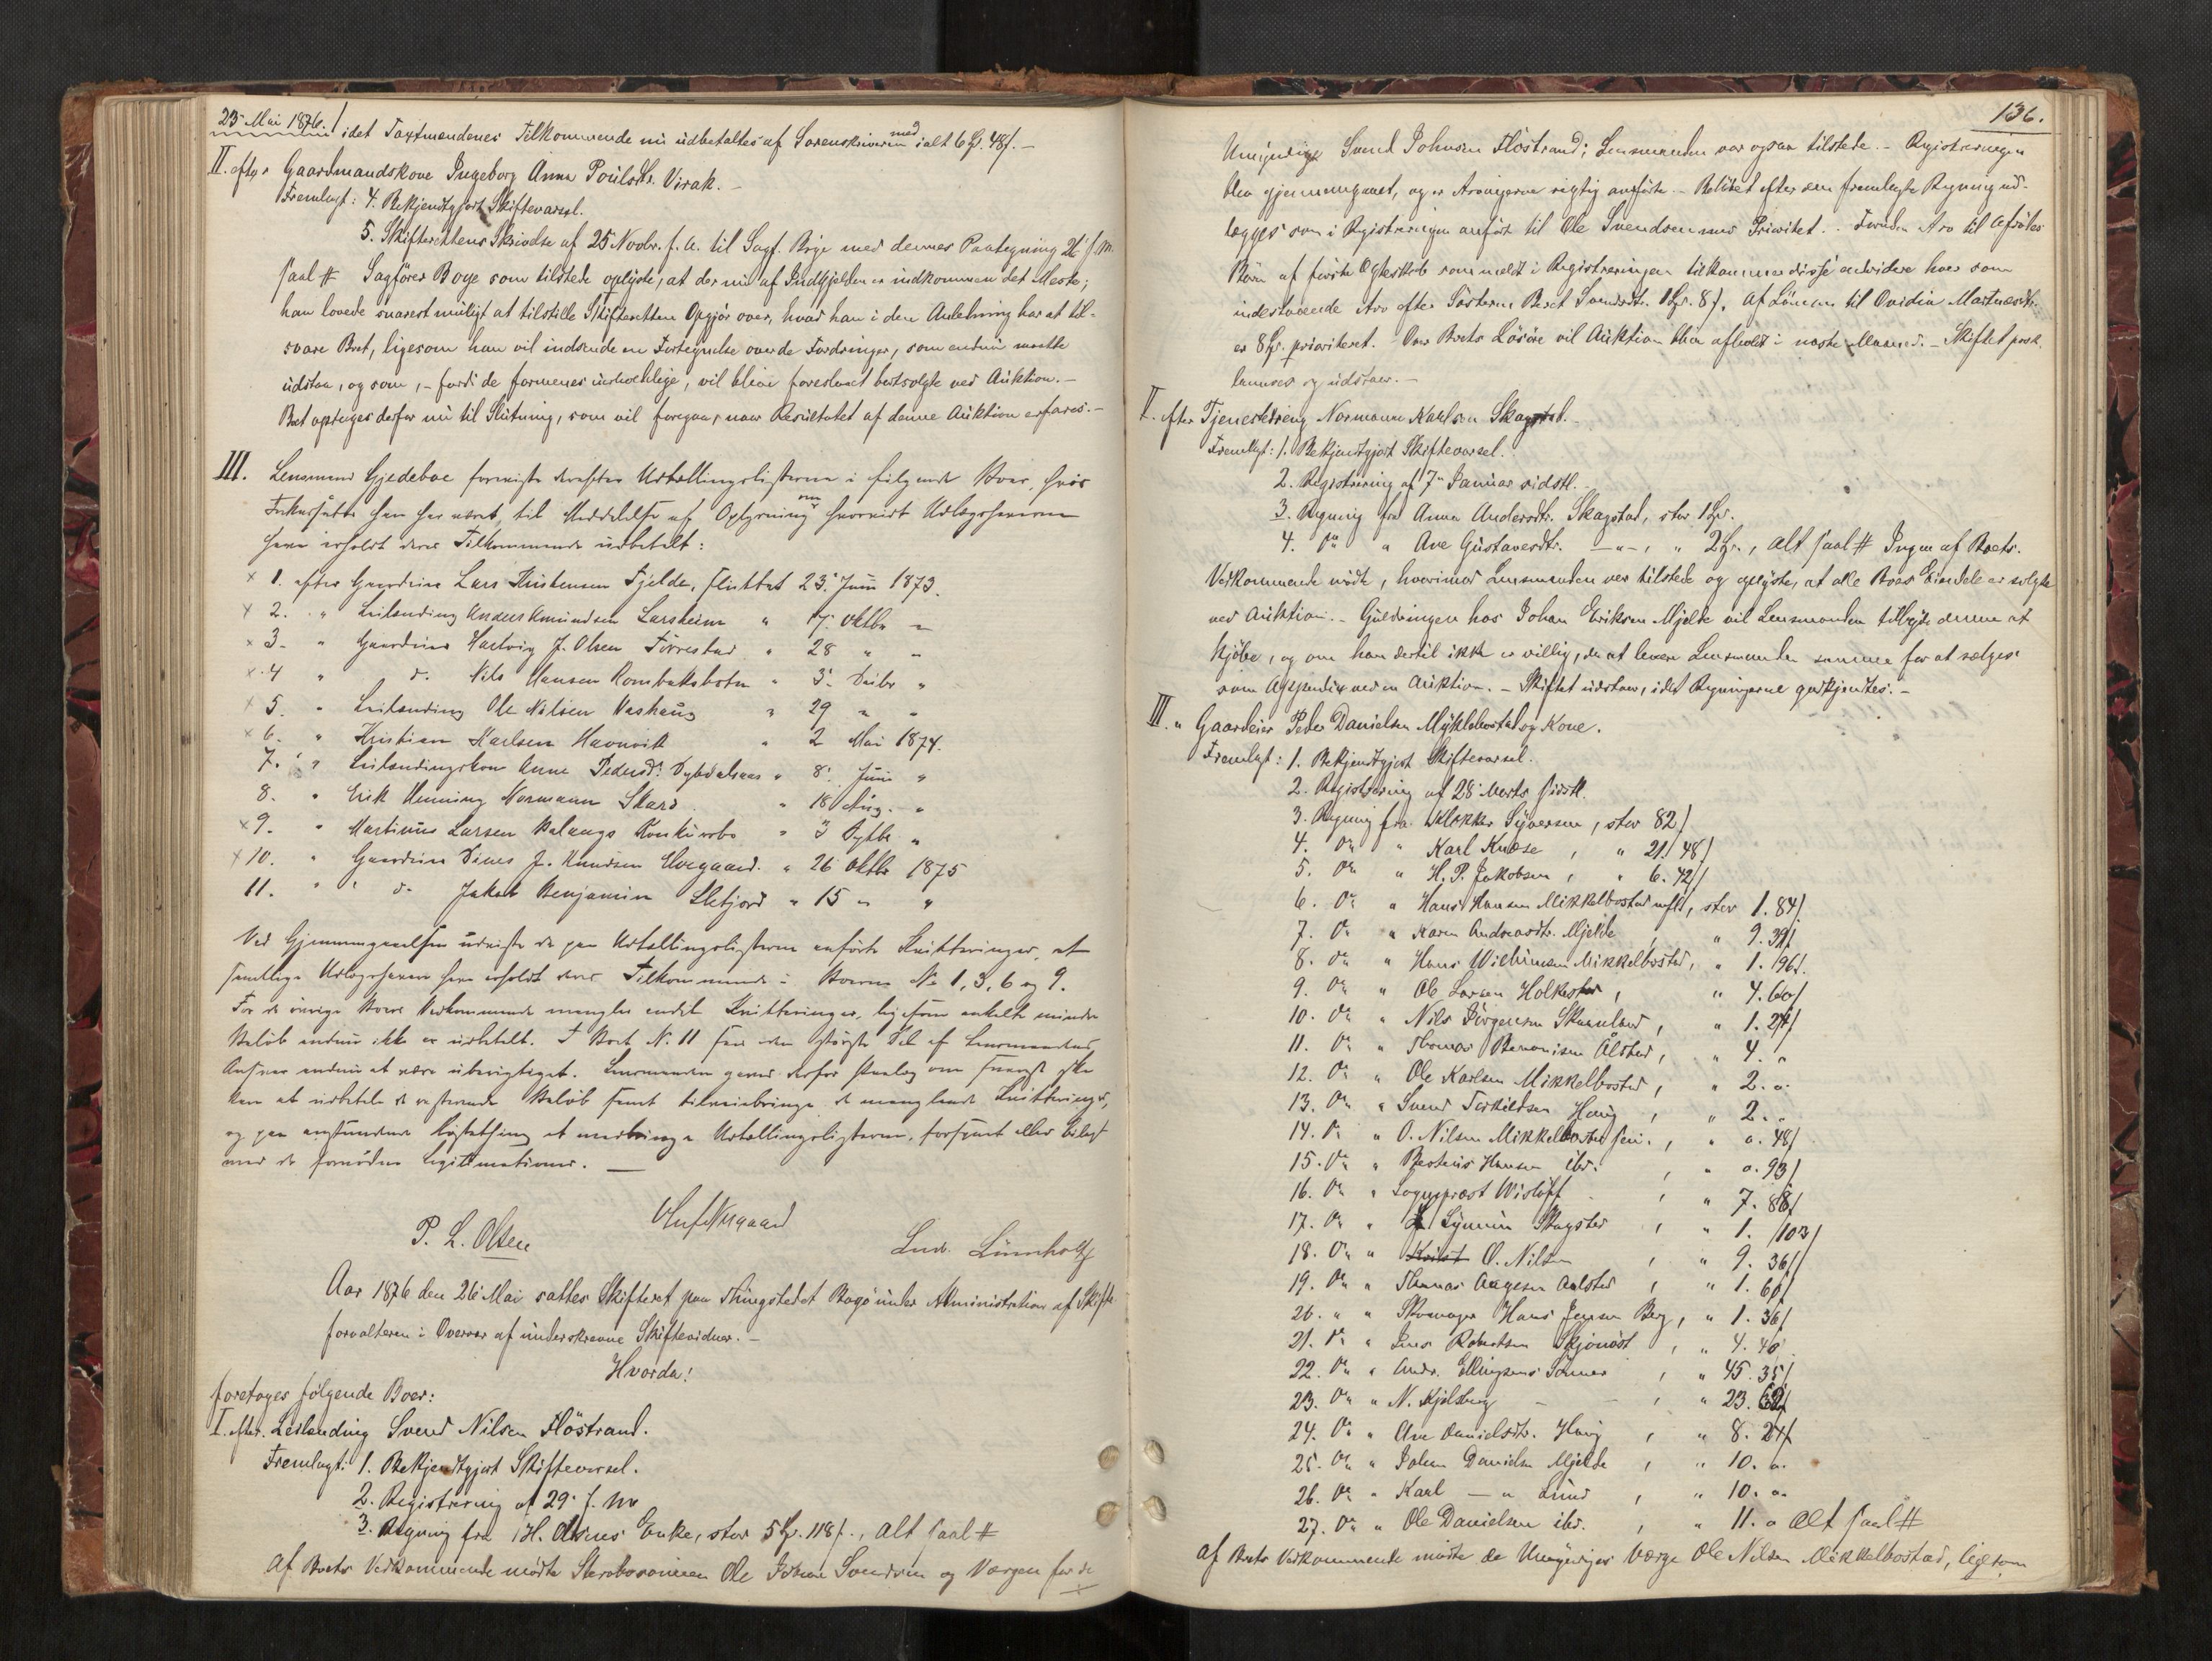 23 Mai 1876.
idet Taxtmændenes Tilkommende nu udbetaltes af Sorenskriveren med ialt 6 Sp. 48 f. –
II. efter Gaardmandskone Ingeborg Anna Poulsdtr. Virak.
Fremlagt: 4. Bekjendtgjort Skiftevarsel.
5. Skifterettens Skrivelse af 25 Novbr. f. A. til Sagf. Boye med dennes Paategning 26 f. M.
saal # Sagfører Boye som tilstede oplyste, at der nu af Indgjelden er indkommen det Meste;
han lovede snarest muligt at tilstille Skifteretten Opgjør over, hvad han i den Anledning har at til-
svare Boet, ligesom han vil indsende en Fortegnelse over de Fordringer, som endnu maatte
udstaa, og som, – fordi de formenes uerholdelige, vil blive foreslaaet bortsolgte ved Auktion. –
Boet optages derfor nu til Slutning, som vil foregaa, naar Resultatet af denne Auktion erfares. –
III. Lensmand Gjedeboe foreviste derefter Udtællingslisterne i følgende Boer, hvis
Inkassator han har været, til Meddelelse af Oplysning om hvorvidt Udlægshaverne
have erholdt deres Tilkommende udbetalt:
x 1. efter Gaardeier Lars Kristensen Fjelda, sluttet 23 Juni 1873.
x 2. " Leilænding Anders Amundsen Larsheim " 17. Oktbr "
x 3. " Gaardeier Hartvig J. Olsen Førrestad " 28 " "
x 4 " d. Nils Hansen Rombaksbotn " 3. Decbr "
x 5. " Leilænding Ole Nilsen Vashaug " 29 " "
x 6. " Kristian Karlsen Havnvik " 2 Mai 1874.
7. " Leilændingskone Anne Pedersd. Dybdalsaas " 8. Juni "
8. " Erik Henning Normann Skard " 18 Aug. "
x 9. " Martinus Larsen Balangs " 3 Septbr "
x 10. " Gaardeier Dines J. Knudsen Elvegaard. " 26 Oktbr 1875
11. " " d. Jakob Benjamin Sletjord " 15 " "
Ved Gjennemgaaelsen udviste de paa Udtællingslisterne anførte Kvitteringer, at
samtlige Udlægshavere have erholdt deres Tilkommende i Boerne No 1, 3, 6 og 9.
For de øvrige Boers Vedkommende mangler endel Kvitteringer, ligesom enkelte mindre
Beløb endnu ikke er udbetalt. I Boet No. 11 den største Del af Lensmandens
Ansvar endnu at være uberigtiget. Lensmanden gaves derfor Paalæg om snarest ske
kan at udbetale de resterende Beløb samt tilveiebringe de manglende Kvitteringer,
og paa at medbringe Udtællingslisterne, forsynet eller bilagt
med de fornødne Legitimationer. –
P. L. Olsen
Lud. Lünnholtz
Aar 1876 den 26 Mai sattes Skifteret paa Thingstedet Bogø under Administration af Skifte-
forvalteren i Overvær af underskrevne Skiftevidner. –
Hvorda!
foretoges følgende Boer:
I. efter. Leilænding Svend Nilsen Flöstrand.
Fremlagt: 1. Bekjendtgjort Skiftevarsel.
2. Registrering af 29. f. M.
3. Regning fra H. Olsens Enke, stor 5 Sp. 118 f., alt saal #
Af Boets Vedkommende mødte Stervbosønnen Ole Johan Svendsen og Værgen for de
136.
Umyndige Svend Johnsen Flöstrand; Lensmanden var ogsaa tilstede. – Registreringen
blev gjennemgaaet, og er Arvingerne rigtig anførte. – Beløbet efter den fremlagte Regning ud-
lægges som i Registreringen anført til Ole Svendsen med Prioritet. – Foruden Arv til Afdødes
Børn af første Egteskab som meldt i Registreringen tilkommer disse endvidere hver som
indestaaende Arv efter Søsteren Beret Svendsdtr. 1 Sp. 8 f. Af Lönnen til Ovidia Martnesdtr.
er 8 Sp. prioriteret. Over Boets Løsøre vil Auktion blive afholdt i næste Maaned. – Skiftet prok-
lameres og udstaar. –
II. efter Tjenestedreng Normann Karlsen Skagstad. –
Fremlagt: 1. Bekjendtgjort Skiftevarsel.
2. Registrering af 7de Januar sidstl. –
3. Regning fra Anna Andersdtr. Skagstad, stor 1 Sp.
4. Do " Ane Gustavesdtr. – " – , " 2 Sp., alt saal # Ingen af Boets
Vedkommende mødte, hvorimod Lensmanden var tilstede og oplyste, at alle Boets Eiendele er solgte
ved Auktion. – Gjeldningen hos Johan Eriksen Mjelde vil Lensmanden tilbyde denne at
kjøbe, og om han dertil ikke er villig, da at levere Lensmanden samme for at sælges
som Appendix ved en Auktion. – Skiftet udstaar, idet Regningerne godkjendtes. –
III. " Gaardeier Peder Danielsen Myklebostad og Kone.
Fremlagt: 1. Bekjendtgjort Skiftevarsel.
2. Registrering af 28 Marts sidstl.
3. Regning fra Klokker Syversen, stor 82 f
4. Do " Karl Knose , " 21. 48 f
5. Do " H. P. Jakobsen , " 6. 42 f
6. Do " Hans Hansen Mikkelbostad , stor 1. 84 f
7. Do " Karen Andreasdtr. Mjelde , " 9. 39 f
8. Do " Hans Wilhimsen Mikkelbostad, " 1. 96 f.
9. Do " Ole Larsen Holkestad , " 4. 60 f
10. Do " Nils Jörgensen Skaanland , " 1. 24 f
11. Do " Thomas Benonisen Ålstad , " 4. "
12. Do " Ole Karlsen Mikkelbostad , " 2. ".
13. Do " Svend Torkildsen Haug , " 2. "
14. D. " O. Nilsen Mikkelbostad sen. , " ". 48 f
15. Do " Berteus Hansen ibd. , " ". 93 f
16. Do " Sogneprest Wislöff , " 7. 88 f
17. Do " Skagstad , " 1. 103 f
18. Do " O. Nilsen , " 9. 36 f
19. Do " Thomas Aagesen Aalstad , " 1. 60 f
20. " " Skomager Hans Jensen Berg, " 1. 36 f
21. Do " Lars Robertsen , " 4. 40
22. Do " Andr. Ellingsens Sönner , " 45. 35 f
23. Do " N. Kjelsberg – – , " 23. f
24. Do " Ane Danielsdtr. Haug , " 8. 24 f
25. Do " Johan Danielsen Mjelde , " 10. ".
26. Do " Karl – " Lund , " 10. ".
27. Do " Ole Danielsen ibd. , " 11. " alt saal #
Af Boets Vedkommende mødte de Umyndiges Værge Ole Nilsen Mikkelbostad, ligesom